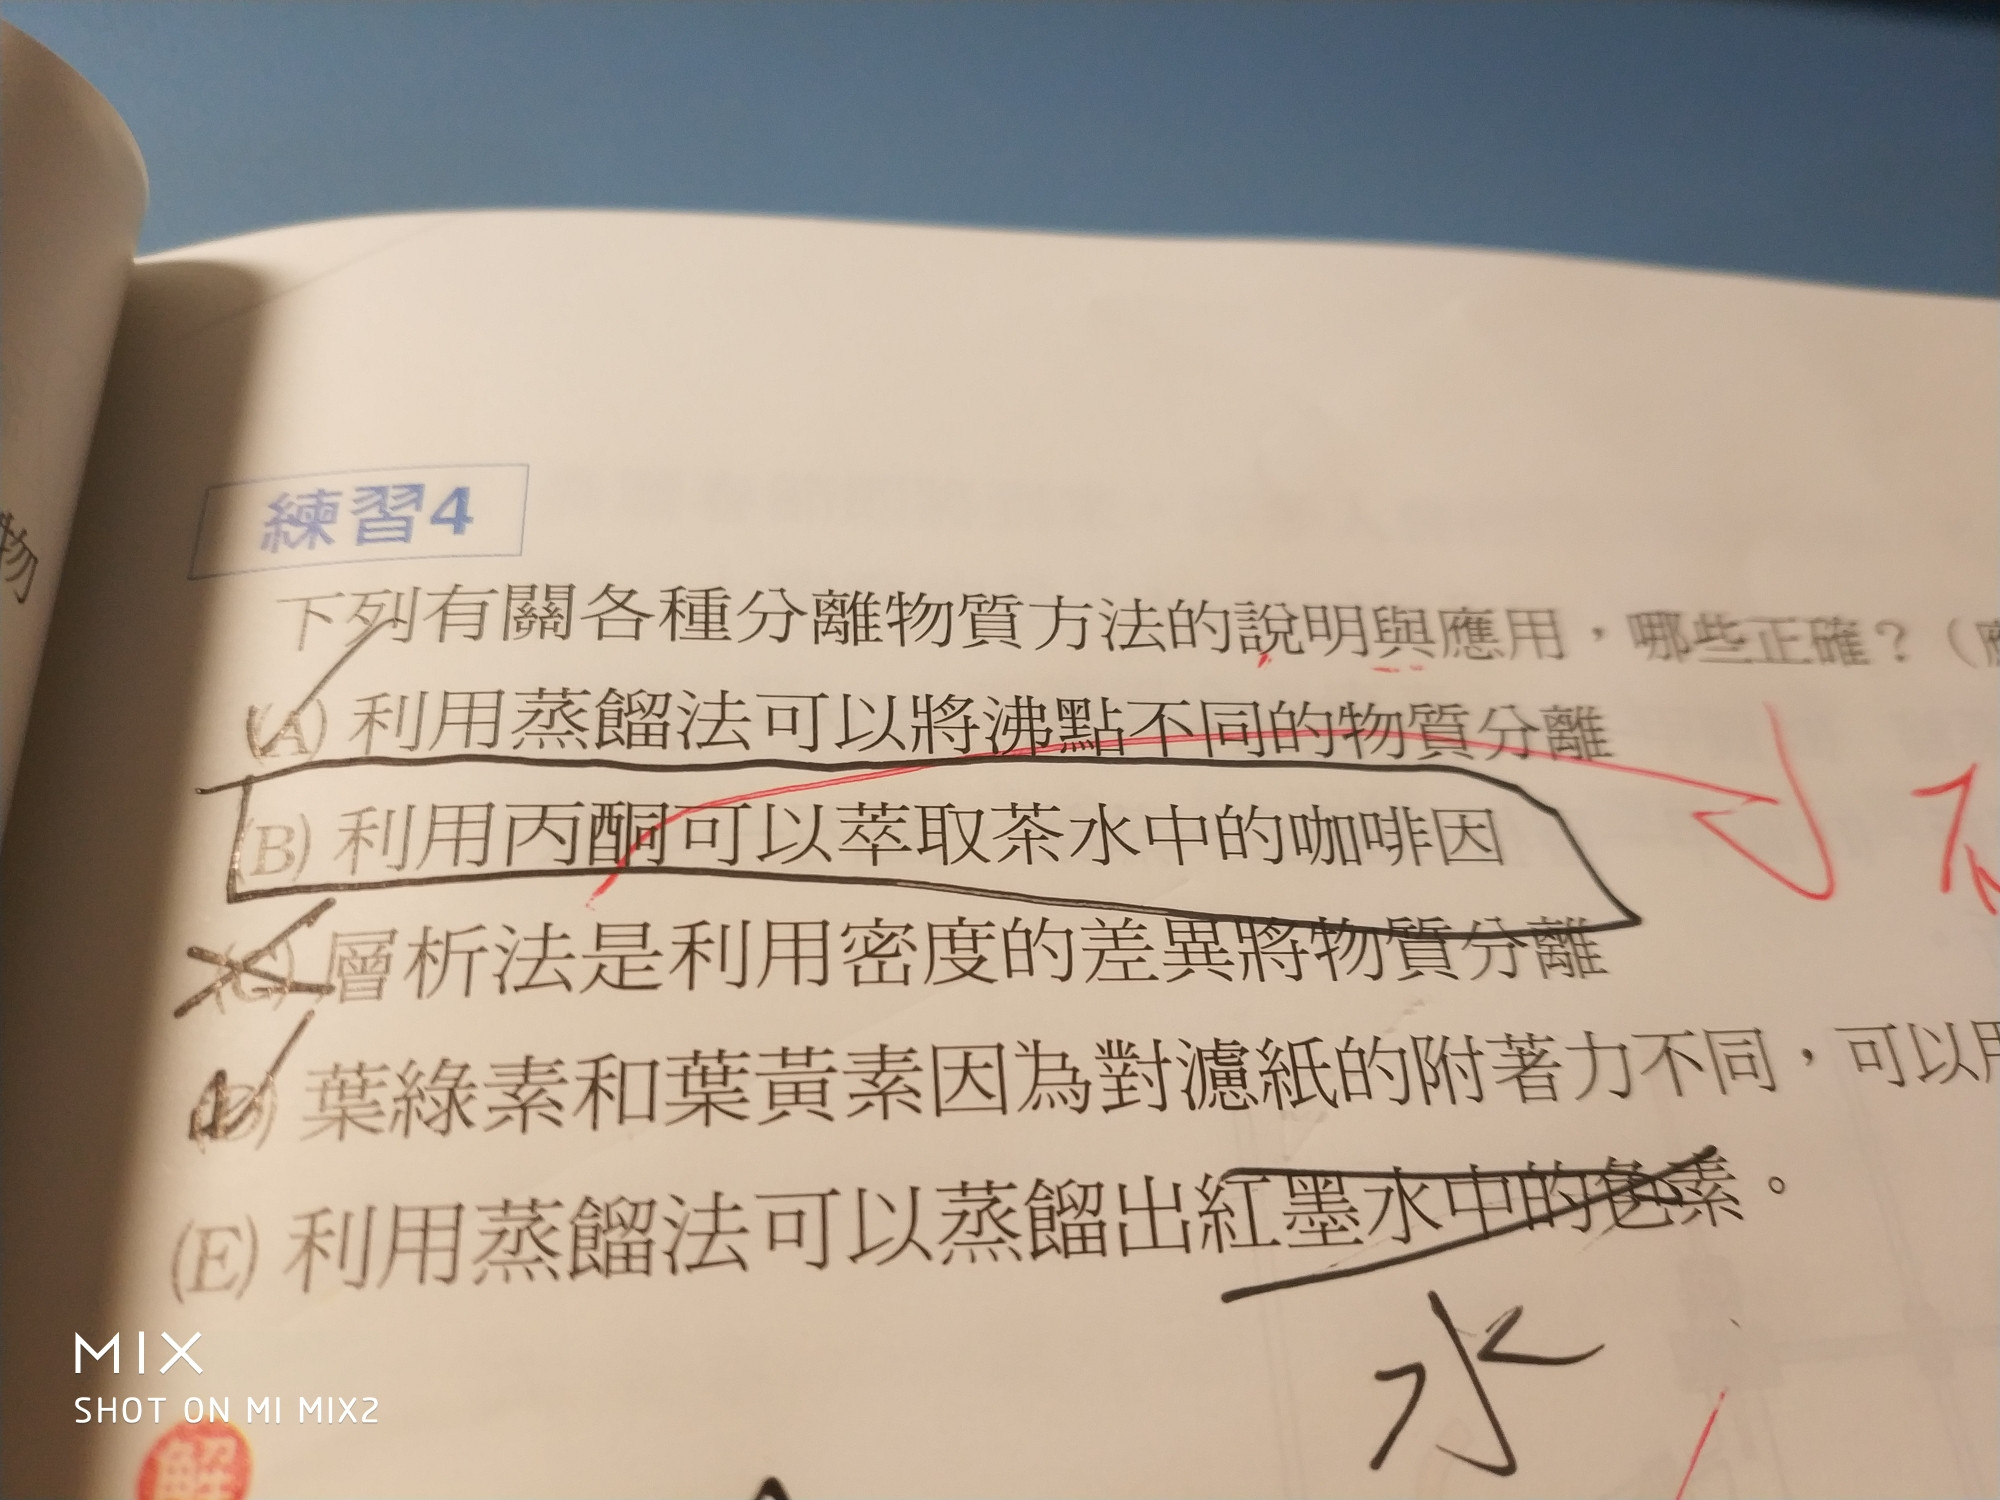 物
練習4
下列有關各種分離物質方法的說明與應用，哪些正確？（應
(A) 利用蒸餾法可以將沸點不同的物質分離
(B) 利用丙酮可以萃取茶水中的咖啡因
(C) 層析法是利用密度的差異將物質分離
(D) 葉綠素和葉黃素因為對濾紙的附著力不同，可以用
(E) 利用蒸餾法可以蒸餾出紅墨水中的色素。
水
MIX
SHOT ON MI MIX2
解